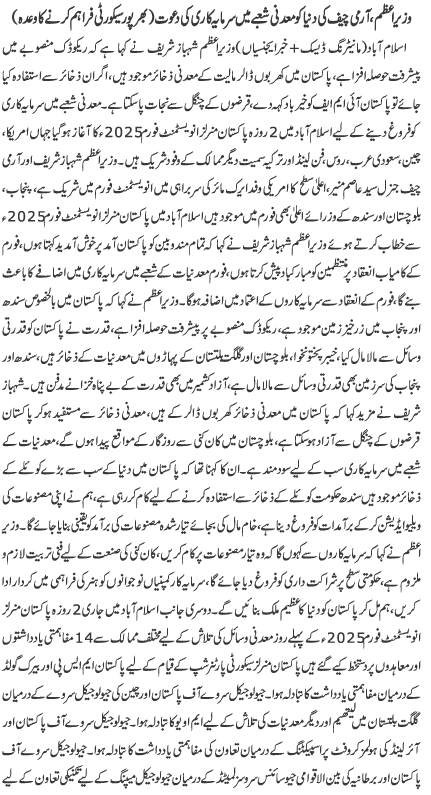 وزیراعظم، آرمی چیف کی دنیا کو معدنی شعبے میں سرمایہ کاری کی دعوت (بھرپور سیکورٹی فراہم کرنے کا وعدہ)
اسلام آباد (مانیٹرنگ ڈیسک + خبر ایجنسیاں) وزیراعظم شہباز شریف نے کہا ہے کہ ریکوڈک منصوبے میں
پیشرفت حوصلہ افزا ہے، پاکستان میں کھربوں ڈالر مالیت کے معدنی ذخائر موجود ہیں، اگر ان ذخائر سے استفادہ کیا
جائے تو پاکستان آئی ایم ایف کو خیرباد کہہ دے، قرضوں کے چنگل سے نجات پاسکتا ہے۔ معدنی شعبے میں سرمایہ کاری
کو فروغ دینے کے لیے اسلام آباد میں 2 روزہ پاکستان منرلز انویسٹمنٹ فورم 2025ء کا آغاز ہوگیا جہاں امریکا،
چین، سعودی عرب، روس، فن لینڈ اور ترکیہ سمیت دیگر ممالک کے وفود شریک ہیں۔ وزیراعظم شہباز شریف اور آرمی
چیف جنرل سید عاصم منیر، اعلیٰ سطح کا امریکی وفد ایرک مائر کی سربراہی میں انویسٹمنٹ فورم میں شریک ہے، پنجاب،
بلوچستان اور سندھ کے وزرائے اعلیٰ بھی فورم میں موجود ہیں اسلام آباد میں پاکستان منرلز انویسٹمنٹ فورم 2025ء
سے خطاب کرتے ہوئے وزیراعظم شہباز شریف نے کہا کہ تمام مندوبین کو پاکستان آمد پر خوش آمدید کہتا ہوں، فورم
کے کامیاب انعقاد پر منتظمین کو مبارکباد پیش کرتا ہوں، فورم معدنیات کے شعبے میں سرمایہ کاری میں اضافے کا باعث
بنے گا، فورم کے انعقاد سے سرمایہ کاروں کے اعتماد میں اضافہ ہوگا۔ وزیراعظم نے کہا کہ پاکستان میں بالخصوص سندھ
اور پنجاب میں زرخیز زمین موجود ہے، ریکوڈک منصوبے پر پیشرفت حوصلہ افزا ہے، قدرت نے پاکستان کو قدرتی
وسائل سے مالا مال کیا، خیبر پختونخوا، بلوچستان اور گلگت بلتستان کے پہاڑوں میں معدنیات کے ذخائر ہیں، سندھ اور
پنجاب کی سرزمین بھی قدرتی وسائل سے مالا مال ہے، آزاد کشمیر میں بھی قدرت کے بے پناہ خزانے مدفن ہیں۔ شہباز
شریف نے مزید کہا کہ پاکستان میں معدنی ذخائر کھربوں ڈالر کے ہیں، معدنی ذخائر سے مستفید ہوکر پاکستان
قرضوں کے چنگل سے آزاد ہوسکتا ہے، بلوچستان میں کان کنی سے روزگار کے مواقع پیدا ہوں گے، معدنیات کے
شعبے میں سرمایہ کاری سب کے لیے سودمند ہے۔ ان کا کہنا تھا کہ پاکستان میں دنیا کے سب سے بڑے کوئلے کے
ذخائر موجود ہیں سندھ حکومت کوئلے کے ذخائر سے استفادہ کرنے کے لیے کام کررہی ہے، ہم نے اپنی مصنوعات کی
ویلیو ایڈیشن کرکے برآمدات کو فروغ دینا ہے، خام مال کی بجائے تیار شدہ مصنوعات کی برآمد کو یقینی بنایا جائے گا۔ وزیر
اعظم نے کہا کہ سرمایہ کاروں سے کہوں گا کہ وہ تیار مصنوعات پر کام کریں، کان کنی کی صنعت کے لیے فنی تربیت لازم و
ملزوم ہے، حکومتی سطح پر شراکت داری کو فروغ دیا جائے گا، سرمایہ کار کمپنیاں نوجوانوں کو ہنر کی فراہمی میں کردار ادا
کریں، ہم مل کر پاکستان کو دنیا کا عظیم ملک بنائیں گے۔ دوسری جانب اسلام آباد میں جاری 2 روزہ پاکستان منرلز
انویسٹمنٹ فورم 2025ء کے پہلے روز معدنی وسائل کی تلاش کے لیے مختلف ممالک سے 14 مفاہمتی یادداشتوں
اور معاہدوں پر دستخط کیے گئے ہیں پاکستان منرلز سیکورٹی پارٹنرشپ کے قیام کے لیے پاکستان ایم ایس پی اور بیرک گولڈ
کے درمیان مفاہمتی یادداشت کا تبادلہ ہوا۔ جیولوجیکل سروے آف پاکستان اور چین کی جیولوجیکل سروے کے درمیان
گلگت بلتستان میں لیتھیم اور دیگر معدنیات کی تلاش کے لیے ایم او یو کا تبادلہ ہوا۔ جیولوجیکل سروے آف پاکستان اور
آئرلینڈ کی ہومز کروفٹ پراسپیکٹنگ کے درمیان تعاون کی مفاہمتی یادداشت کا تبادلہ ہوا۔ جیولوجیکل سروے آف
پاکستان اور برطانیہ کی بین الاقوامی جیوسائنس سروسز لمیٹڈ کے درمیان جیولوجیکل میپنگ کے لیے تکنیکی تعاون کے لیے